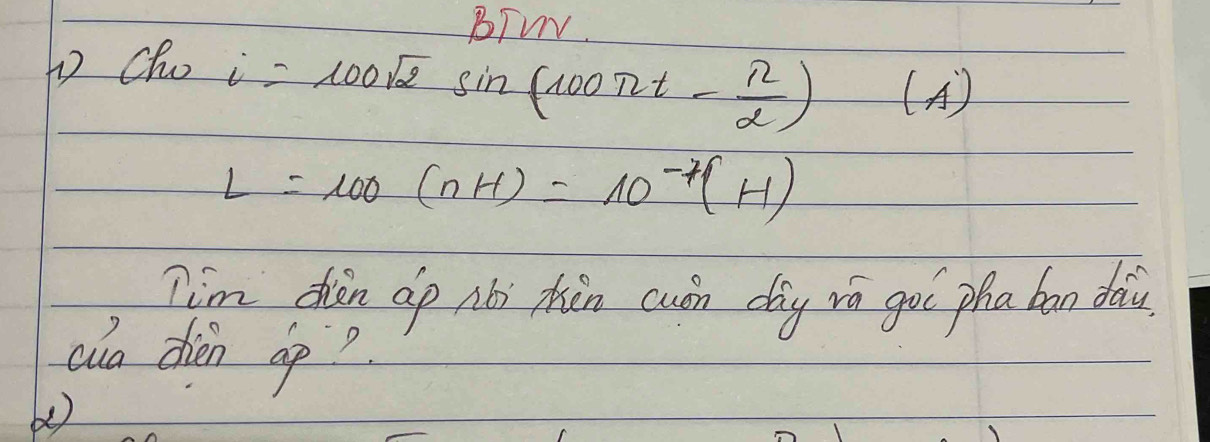 BTVN.
1) Cho i = 100√2 sin (100πt - π/2) (A)
L = 100 (nH) = 10⁻⁷ (H)
Tìm điện áp rơi trên cuộn dây và góc pha ban đầu
của điện áp?.
2)